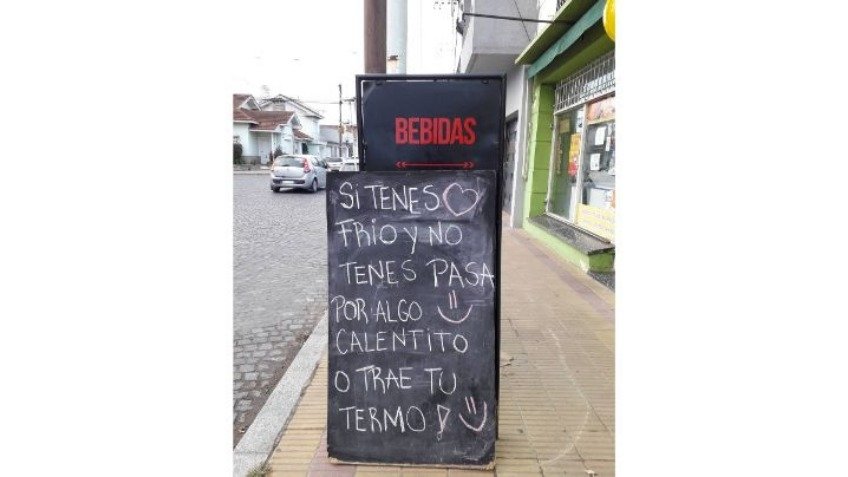 BEBIDAS
Si TENES
FRIO Y NO
TENES PASA
POR ALGO
CALENTITO
O TRAE TU
TERMO!